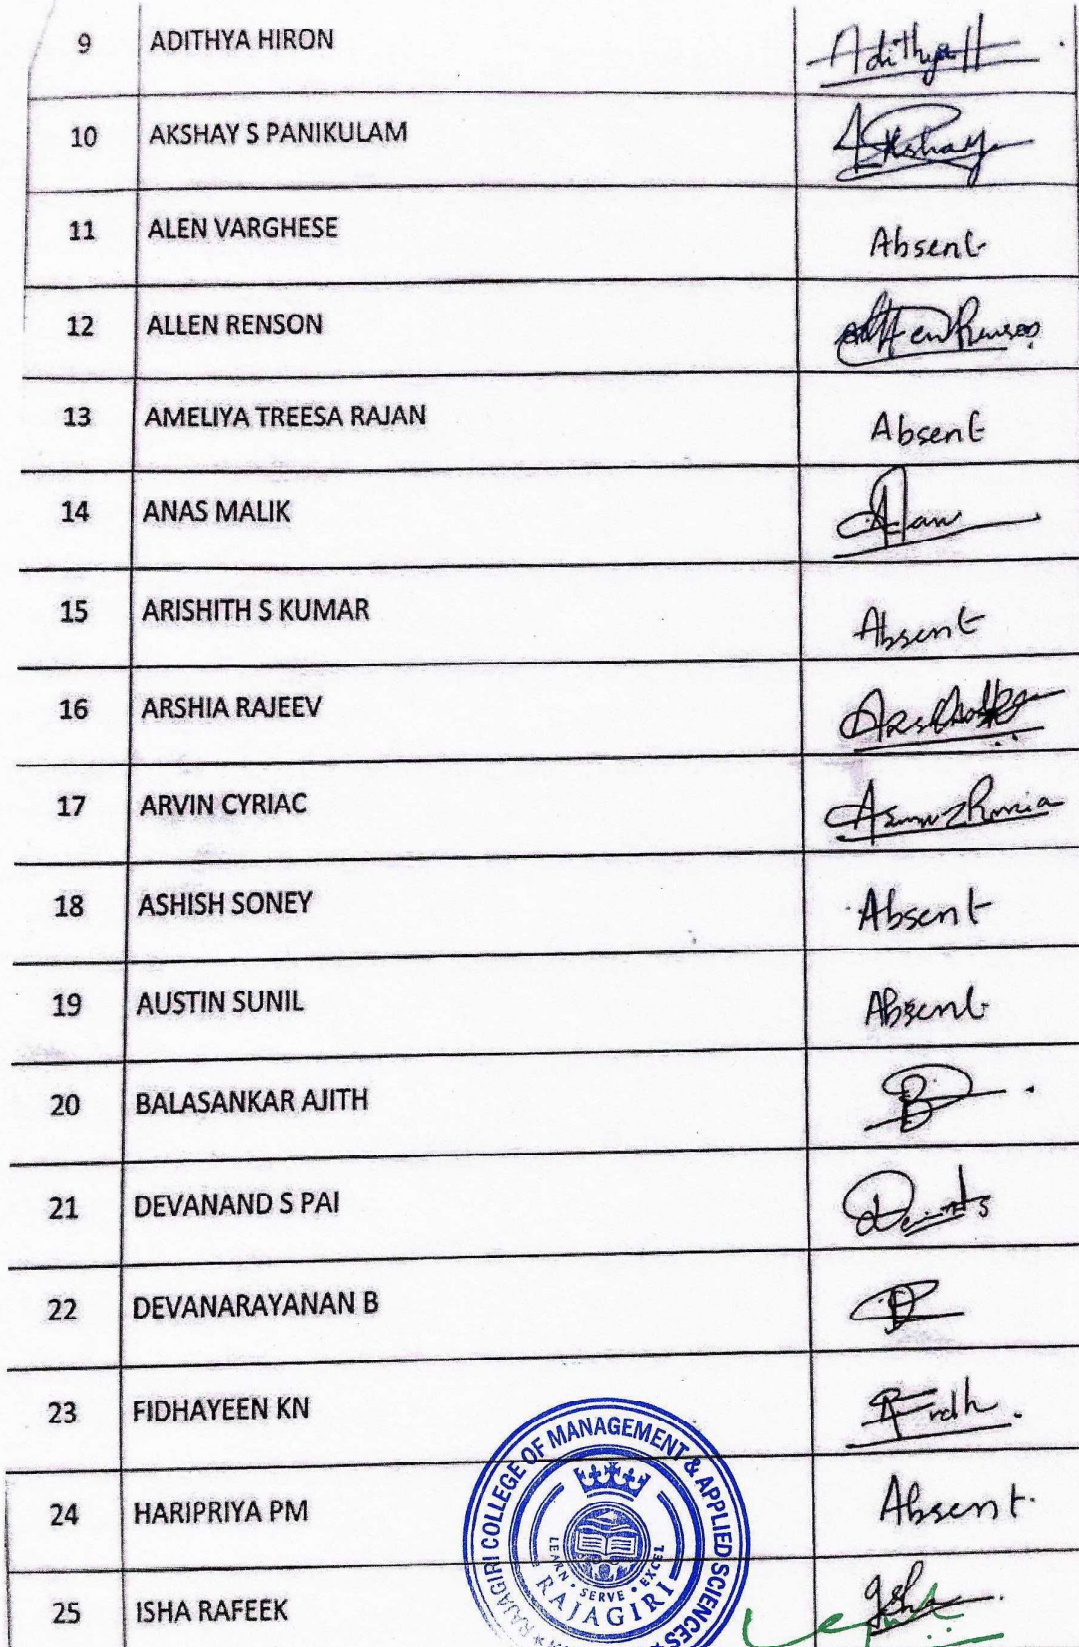 9 ADITHYA HIRON Adithya H
10 AKSHAY S PANIKULAM Akshay
11 ALEN VARGHESE Absent
12 ALLEN RENSON Allen Renson
13 AMELIYA TREESA RAJAN Absent
14 ANAS MALIK
15 ARISHITH S KUMAR Absent
16 ARSHIA RAJEEV
17 ARVIN CYRIAC
18 ASHISH SONEY Absent
19 AUSTIN SUNIL Absent
20 BALASANKAR AJITH B
21 DEVANAND S PAI
22 DEVANARAYANAN B
23 FIDHAYEEN KN
24 HARIPRIYA PM Absent
25 ISHA RAFEEK Isha
RAJAGIRI COLLEGE OF MANAGEMENT & APPLIED SCIENCES
LEARN • SERVE • EXCEL
RAJAGIRI